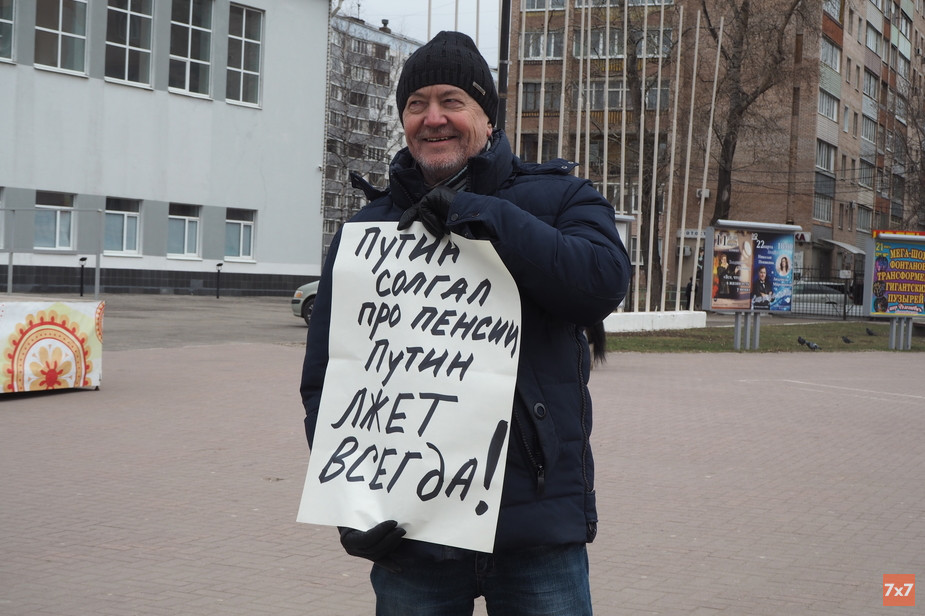 Путин
солгал
про пенсии
Путин
лжет
всегда!
22 марта
МЕГА-ШОУ
ФОНТАНОВ
ТРАНСФОРМЕРОВ
ГИГАНТСКИХ
ПУЗЫРЕЙ
7x7